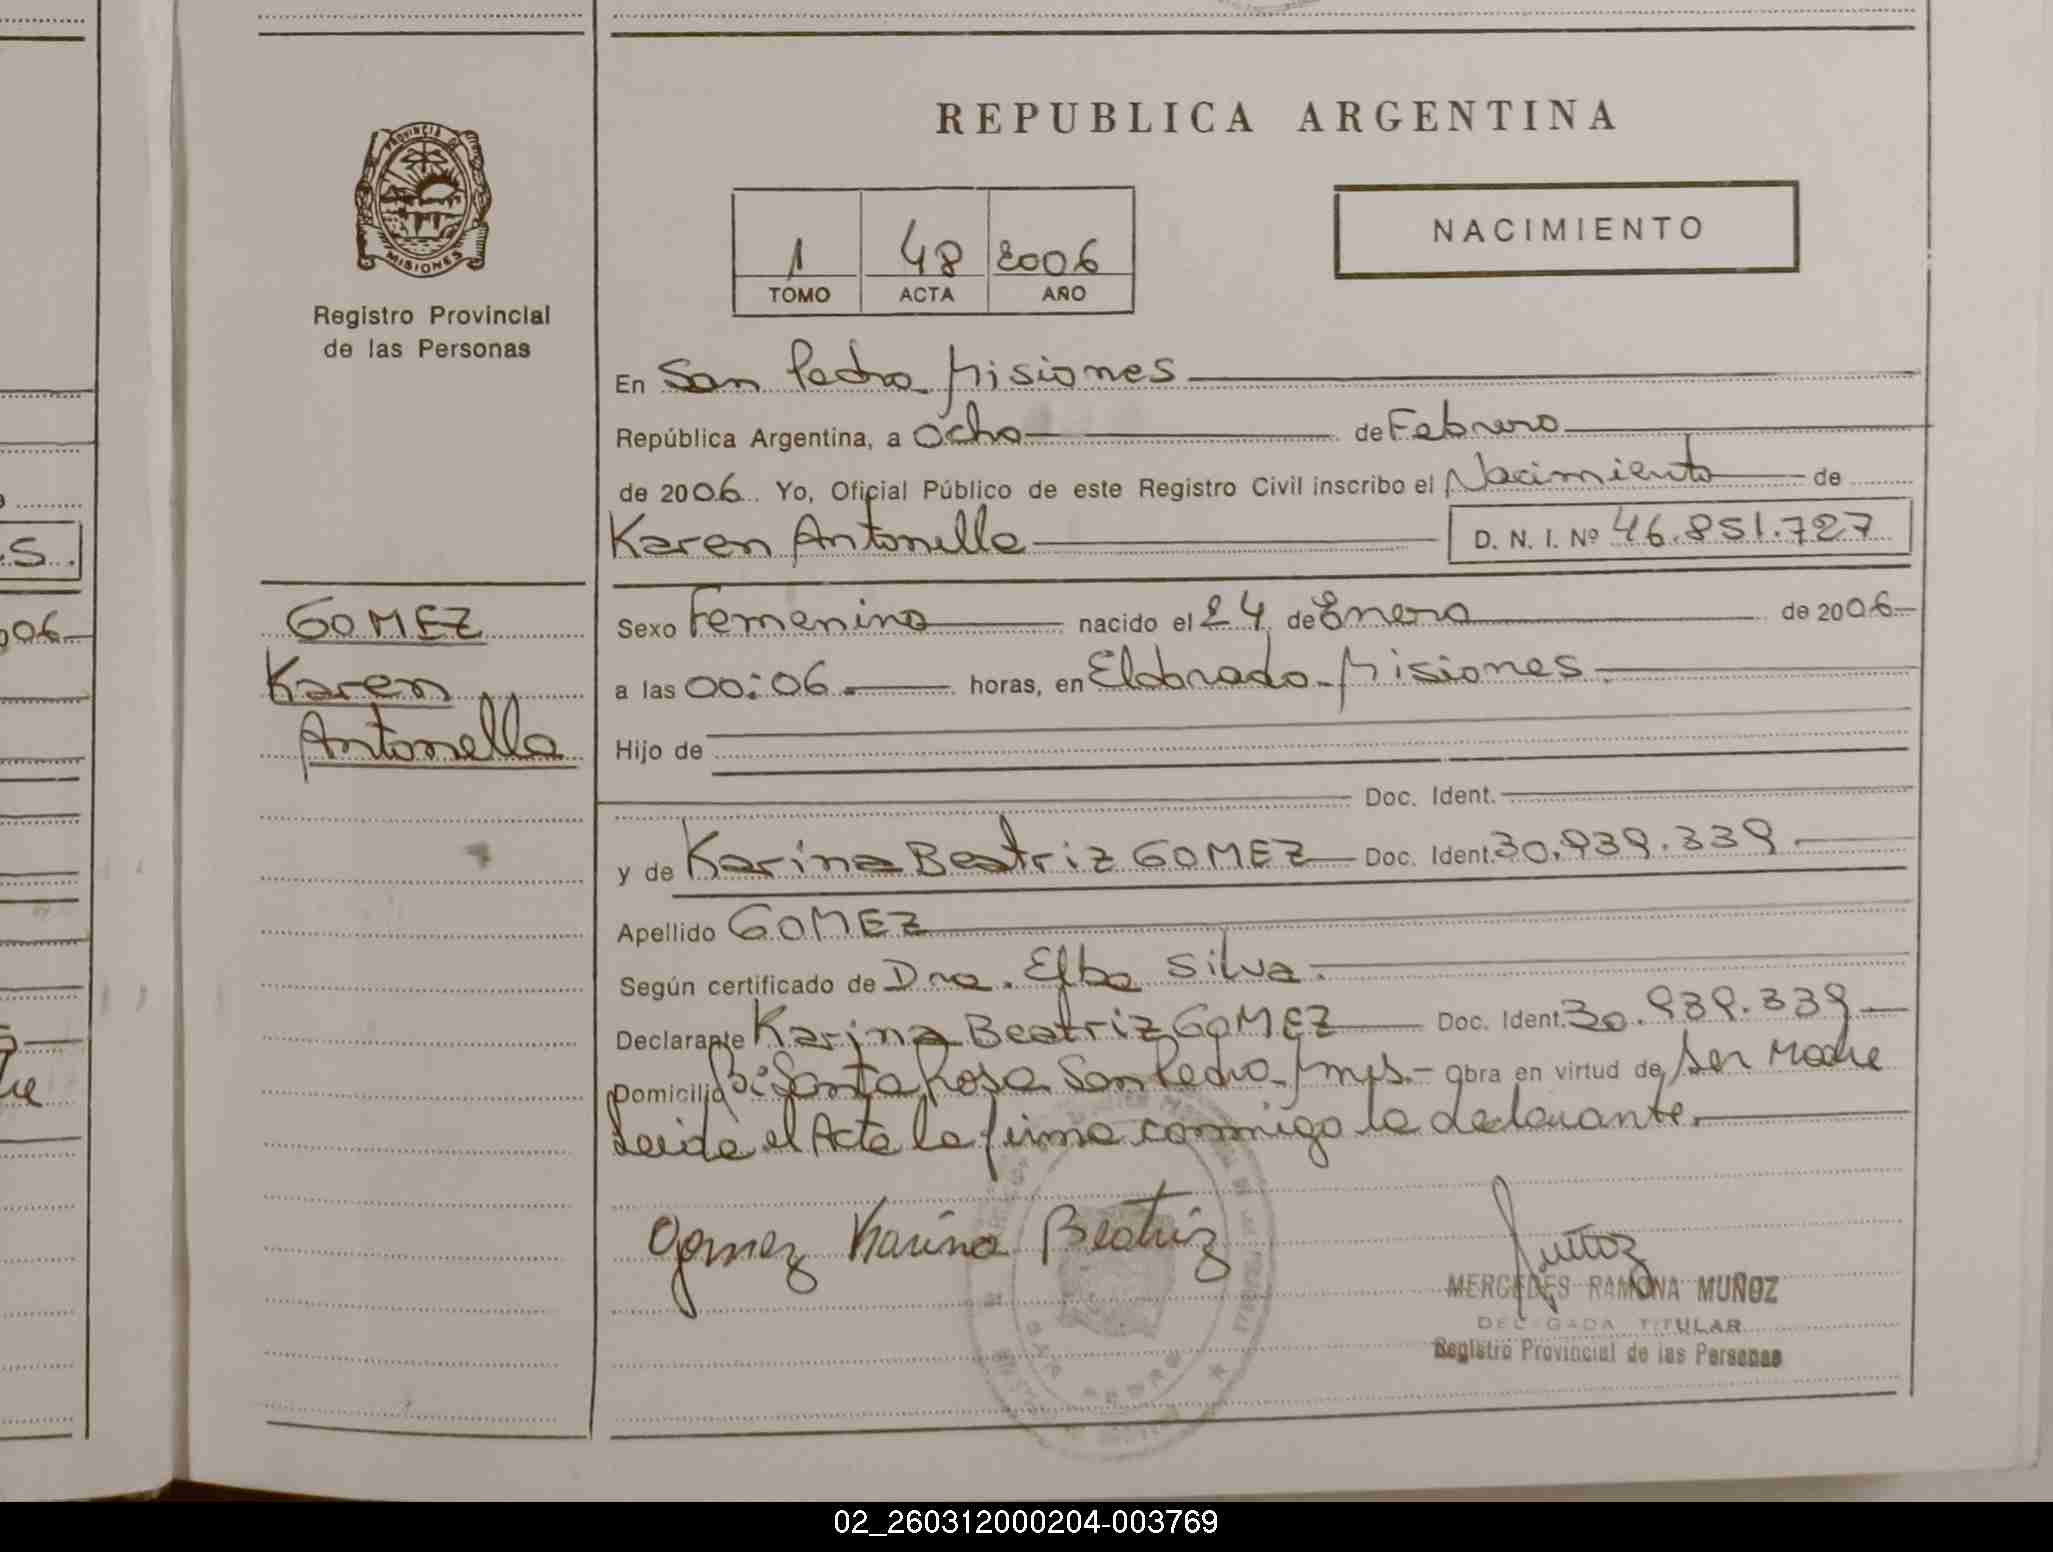 REPUBLICA ARGENTINA
PROVINCIA DE
MISIONES
Registro Provincial
de las Personas
1 48 2006
TOMO ACTA AÑO
NACIMIENTO
En San Pedro Misiones
República Argentina, a Ocho de Febrero
de 2006. Yo, Oficial Público de este Registro Civil inscribo el Nacimiento de
Karen Antonella D. N. I. Nº 46.851.727
GOMEZ
Karen
Antonella
Sexo Femenino nacido el 24 de Enero de 2006
a las 00:06 horas, en Eldorado - Misiones
Hijo de
Doc. Ident.
y de Karina Beatriz GOMEZ Doc. Ident. 30.939.339
Apellido GOMEZ
Según certificado de Dra. Elba Silva.
Declarante Karina Beatriz GOMEZ Doc. Ident. 30.939.339
Domicilio Bº Santa Rosa San Pedro - Mnes.- obra en virtud de ser Madre
Leida el Acta la firma conmigo la declarante.
Gomez Karina Beatriz
Muñoz
MERCEDES RAMONA MUÑOZ
DELEGADA TITULAR
Registro Provincial de las Personas
SAN PEDRO
S.
006
02_260312000204-003769